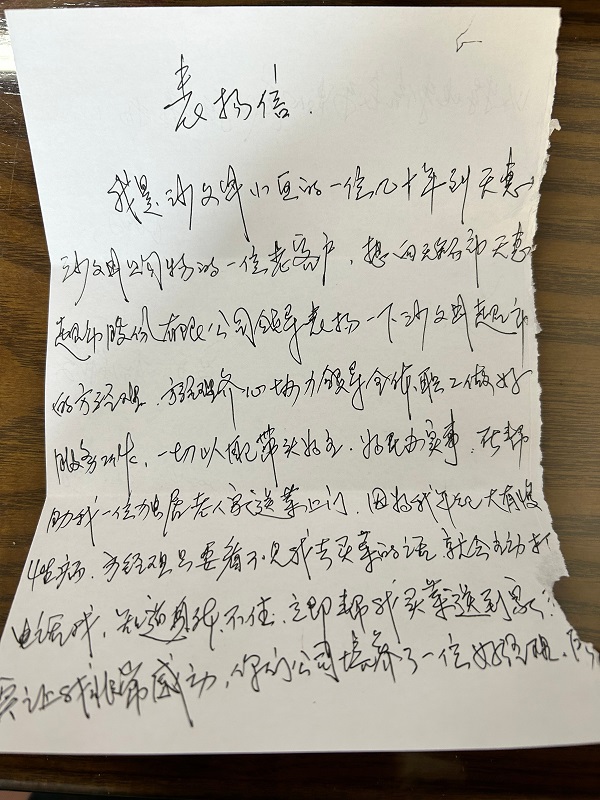 表扬信.
我是沙文井小区的一位几十年到天惠
沙文井公司物的一位老客户，想向总部天惠
超市股份有限公司领导表扬一下沙文井超市
的方经理.方经理齐心协力领导全体职工做好
服务工作，一切以身带头为主.为民办实事.在帮
助我一位独居老人家送菜上门.因为我年纪大有慢
性病.方经理只要看不见我去买菜的话就会主动打
电话我，知道身体不佳.立即帮我买菜送到家
真让我非常感动，你们公司培养了一位好经理.